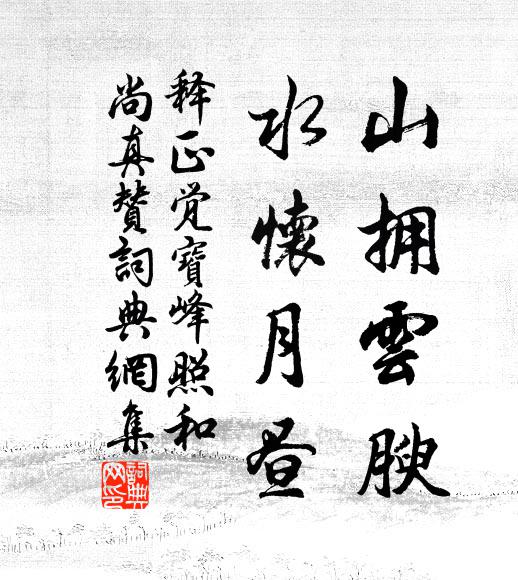 山拥雲腴
水懷月昼
释正觉寶峰照和
尚真贊詞典網集